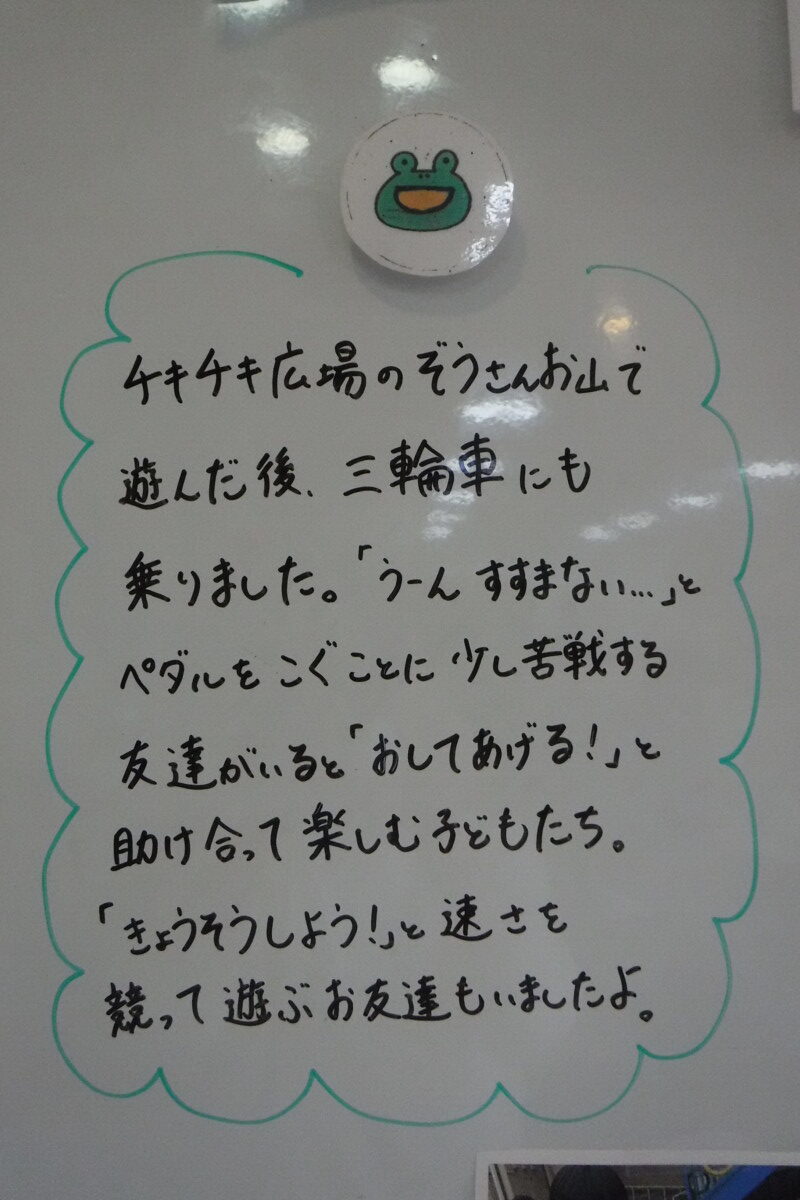 チキチキ広場のぞうさんお山で
遊んだ後、三輪車にも
乗りました。「うーん すすまない…」と
ペダルを こぐことに 少し苦戦する
友達がいると「おしてあげる!」と
助け合って 楽しむ子どもたち。
「きょうそうしよう!」と 速さを
競って 遊ぶお友達もいましたよ。